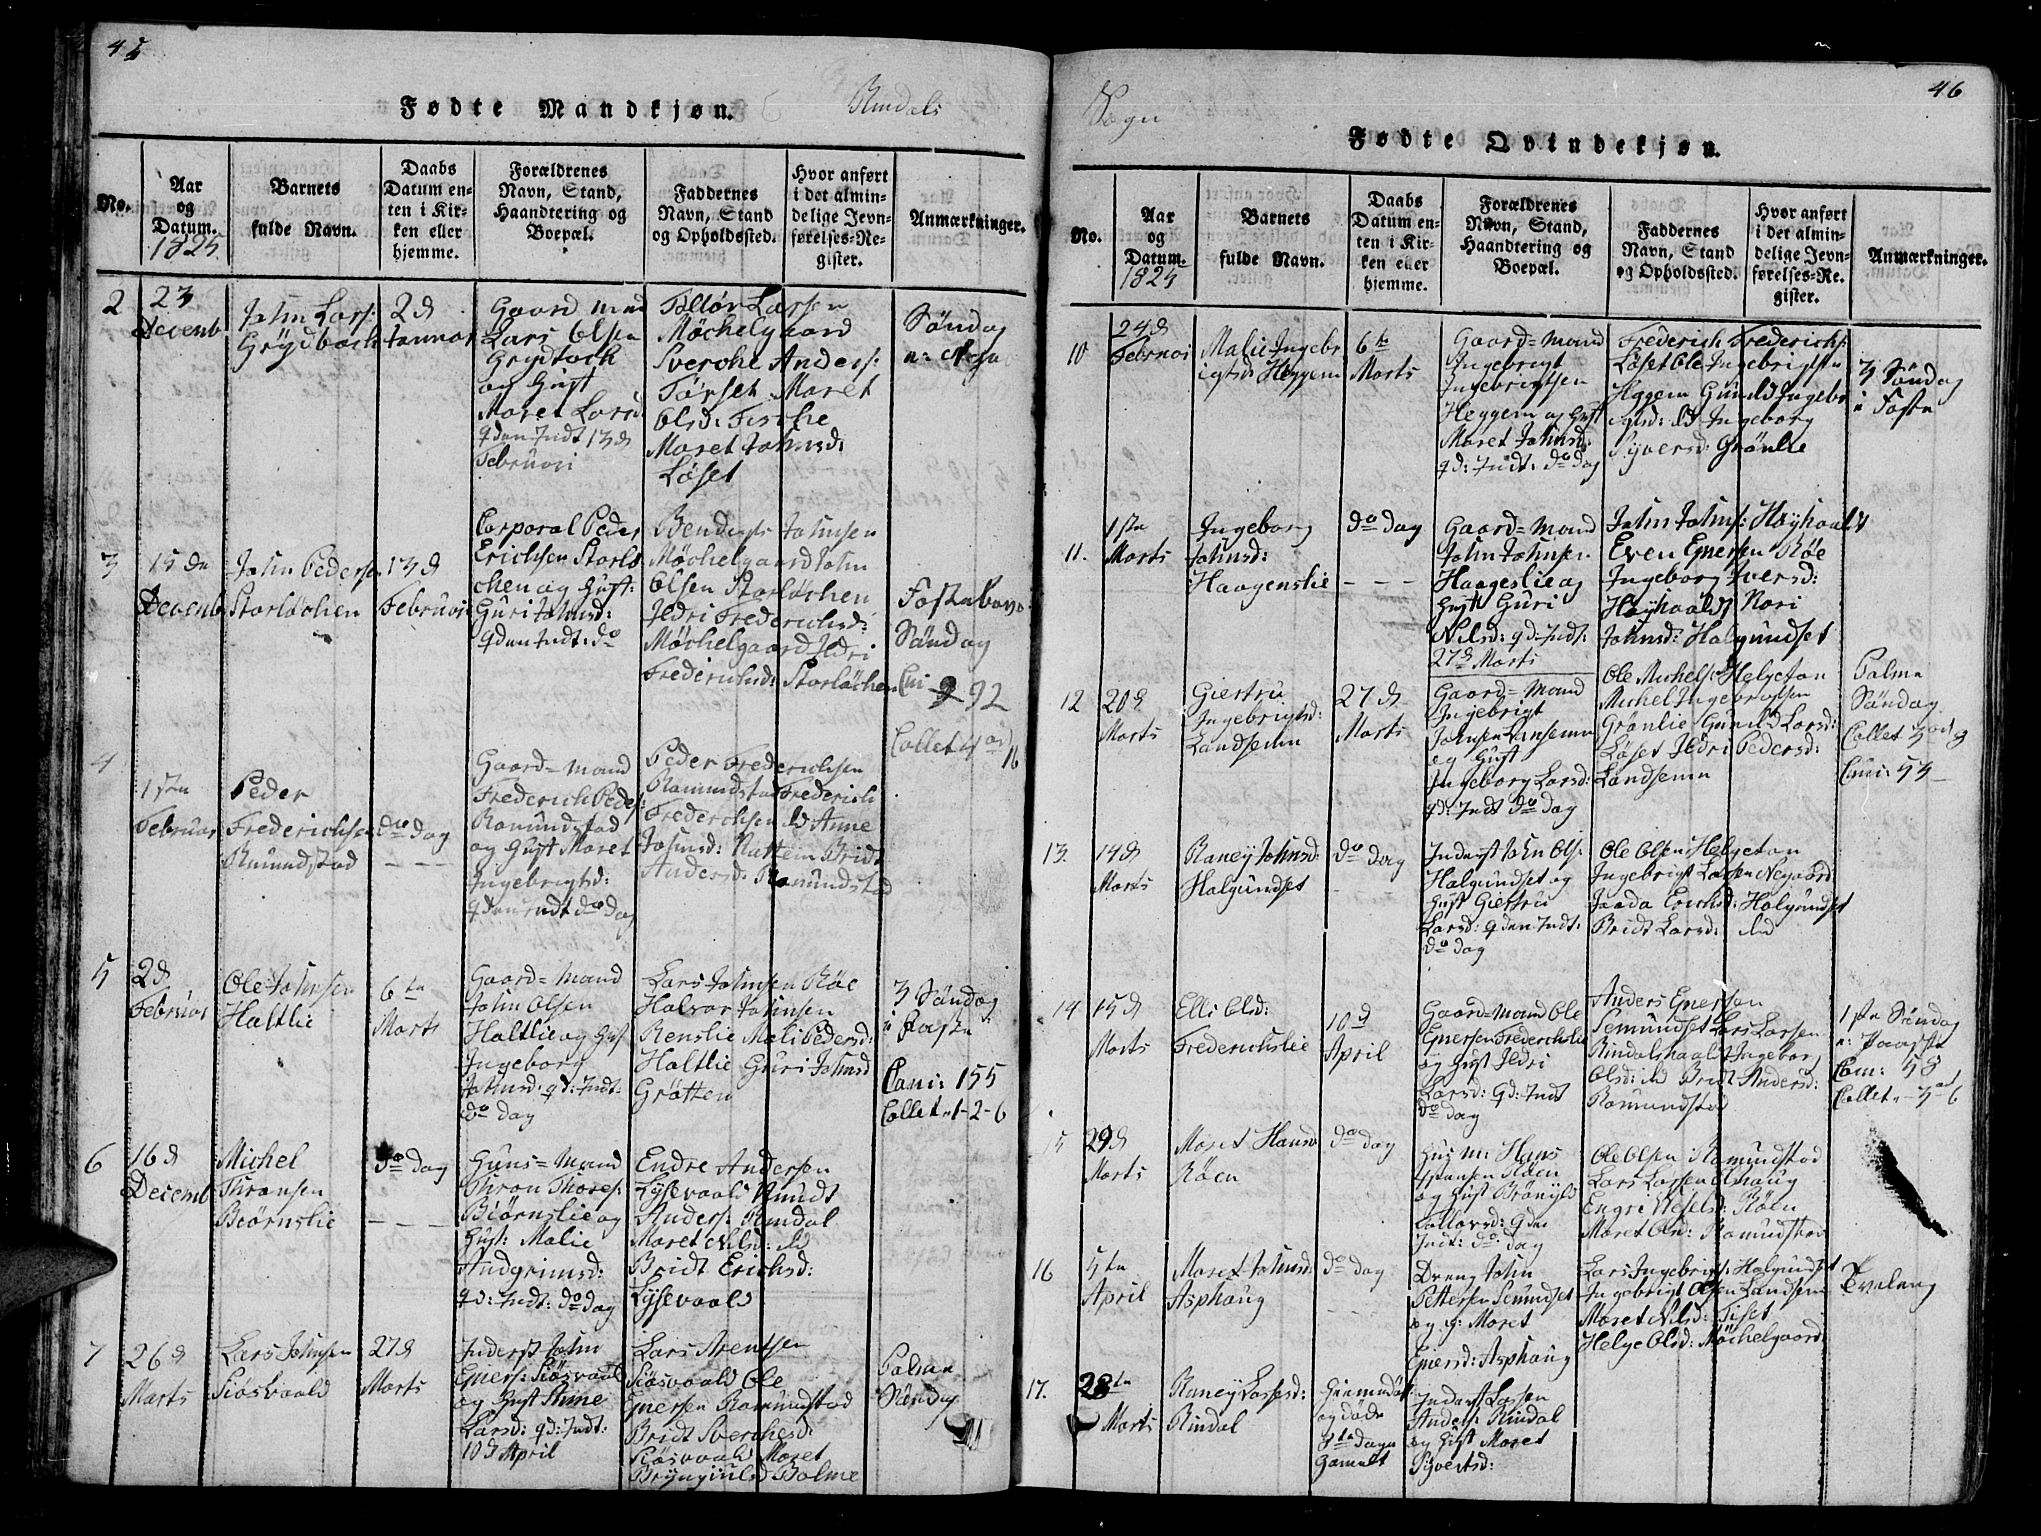 45
Fødte Mandkjøn.
Rindals
No.
Aar
og
Datum.
1825
Barnets
fulde Navn.
Daabs
Datum en-
ten i Kir-
ken eller
hjemme.
Forældrenes
Navn, Stand,
Haandtering og
Boepæl.
Faddernes
Navn, Stand
og Opholdssted.
Hvor anført
i det almin-
delige Jevn-
førelses-Re-
gister.
Anmærkninger.
2
23
Decemb
John Lars:
Grydbach
2d
Januar
Gaard mand
Lars Olsen
og Gust
Maret Larsd
qden Indt 13d
Februari
Tolløv Larsen
Møchelgaard
Sverche Anders:
Tørset Maret
Olsd: Fische
Maret Johnsd:
Løset
Søndag
3
15de
Decemb
John Peders
Storløchen
13d
Februari
Corporal Peder
Erichsen Storlø
chen og Gust:
Guri Johnsd:
qden Indt: do
Bendigt Johnsen
Møchelgaard John
Olsen Storløchen
Ildri Frederichsd:
Møchelgaard Ildri
Frederichsd: Storløchen
Fastelavns
Søndag
92
Collet
4
1ste
Februar
Peder
Frederichsen
Ramundstad
do dag
Gaard=mand
Frederich Peders:
Ramundstad
og Gust Maret
Ingebrigtsd:
qden Indt do dag
Peder Frederichsen
Ramundstad Frederich
Frederichsen ibd Anne
Johnsd: Nattem Bridt
Andersd: Ramundstad
5
2d
Februar
Ole Johnsen
Haltlie
6te
Marts
Gaard=mand
John Olsen
Haltlie og Gust
Ingeborg
Johnsd: qd: Indt:
do dag
Lars Johnsen Røe
Halvor Johnsen
Renslie Mali Pedersd:
Haltlie Guri Johnsd
Grøtten
3 Søndag
i Faste
Cani: 155
Collet 1-2-6
6
16d
Decemb
Michel
Thronsen
Biørnslie
do dag
Huus=mand
Thron Thores:
Biørnslie og
Gust: Malie
qd: Indt: do dag
Endre Andersen
Lysevaald Knudt
Anders: Rindal
Maret Nilsd: ibd
Bridt Erichsd:
Lysevaald
7
26d
Marts
Lars Johnsen
Siøsvaald
27d
Marts
Inderst John
Eners: Siøsvaald
og Gust Anne
Larsd: qd: Indt:
10d April
Lars Arentsen
Siøsvaald Ole
Enersen Ramundstad
Bridt Sverchesd:
Siøsvaald Maret
Bolme
Palme
Søndag
46
Sogn
Fødte Qvindekjøn.
No.
Aar
og
Datum.
1825
Barnets
fulde Navn.
Daabs
Datum en-
ten i Kir-
ken eller
hjemme.
Forældrenes
Navn, Stand,
Haandtering og
Boepæl.
Faddernes
Navn, Stand
og Opholdssted.
Hvor anført
i det almin-
delige Jevn-
førelses-Re-
gister.
Anmærkninger.
10
24d
Februari
Malie Ingebr
igtsd: Heggem
6te
Marts
Gaard=mand
Ingebrigt
Ingebrigtsen
Heggem og Gust
Maret Johnsd:
qd: Indt: do dag
Frederich Frederichs:
Løset Ole Ingebrigtsen
Heggem Gunild Ingebr
igtsd: ibd Ingeborg
Syversd: Grønlie
3 Søndag
i Faste
11.
1ste
Marts
Ingeborg
Johnsd:
Haagenslie
do dag
Gaard=mand
John Johnsen
Haageslie og
Gust Guri
Nilsd: qd: Indt:
27d Marts
John Johns: Høyhaald
Even Enersen Røe
Ingeborg Iversd:
Høyhaald Kari
Johnsd: Halgundset
12
20d
Marts
Giestru
Ingebrigtsd:
Landsemm
27d
Marts
Gaard=mand
Ingebrigt
Johnsen Lansemm
og Gust
Ingeborg Larsd:
qd: Indt do dag
Ole Michels: Helgetan
Michel Ingebrigtsen
Grønlie Gunild Larsd:
Løset Ildri Pedersd:
Landsemm
Palme
Søndag
Collet
Cani: 53
13.
14d
Marts
Raney Johnsd:
Halgundset
do dag
Inderst John Ols:
Halgundset og
Gust Giestru
Larsd: qden Indt:
do dag
Ole Olsen Helgetan
Ingebrigt Larsen Negaard
Erichsd: Halgundset
Bridt Larsd: ibd
14
15d
Marts
Elli Olsd:
Frederichslie
10d
April
Gaard=mand Ole
Enersen Frederichslie
og Gust Ildri
Larsd: qd: Indt
do dag
Anders Enersen
Semundset Lars Larsen
Rindalshaald Ingeborg
Olsd: ibd Bridt Andersd:
Ramundstad
1ste Søndag
Paaske
Cani: 58
Collet
15
29d
Marts
Maret Hansd
Røen
do dag
Hus m: Hans
Hansen Røen
og Gust
Tolløvsd: qden
Indt: do dag
Ole Olsen Ramundstad
Lars Larsen Elshaug
Engri Nielsd: Røen
Maret Olsd: Ramundstad
16
5te
April
Maret Johnsd:
Asphaug
do dag
Dreng John
Pettersen Semundset
og g: Maret
Enersd: Asphaug
Lars Ingebrigts: Halgundset
Ingebrigt Olsen Landsem
Maret Nilsd: Tiset
Helge Olsd: Møchelgaard
17.
28te
Marts
Raney Larsd:
Rindal
Giemmedøbt
og døde
8te Dage
Gammelt
Inderst Larsen
Anders: Rindal
og Gust Maret
Syvertsd: